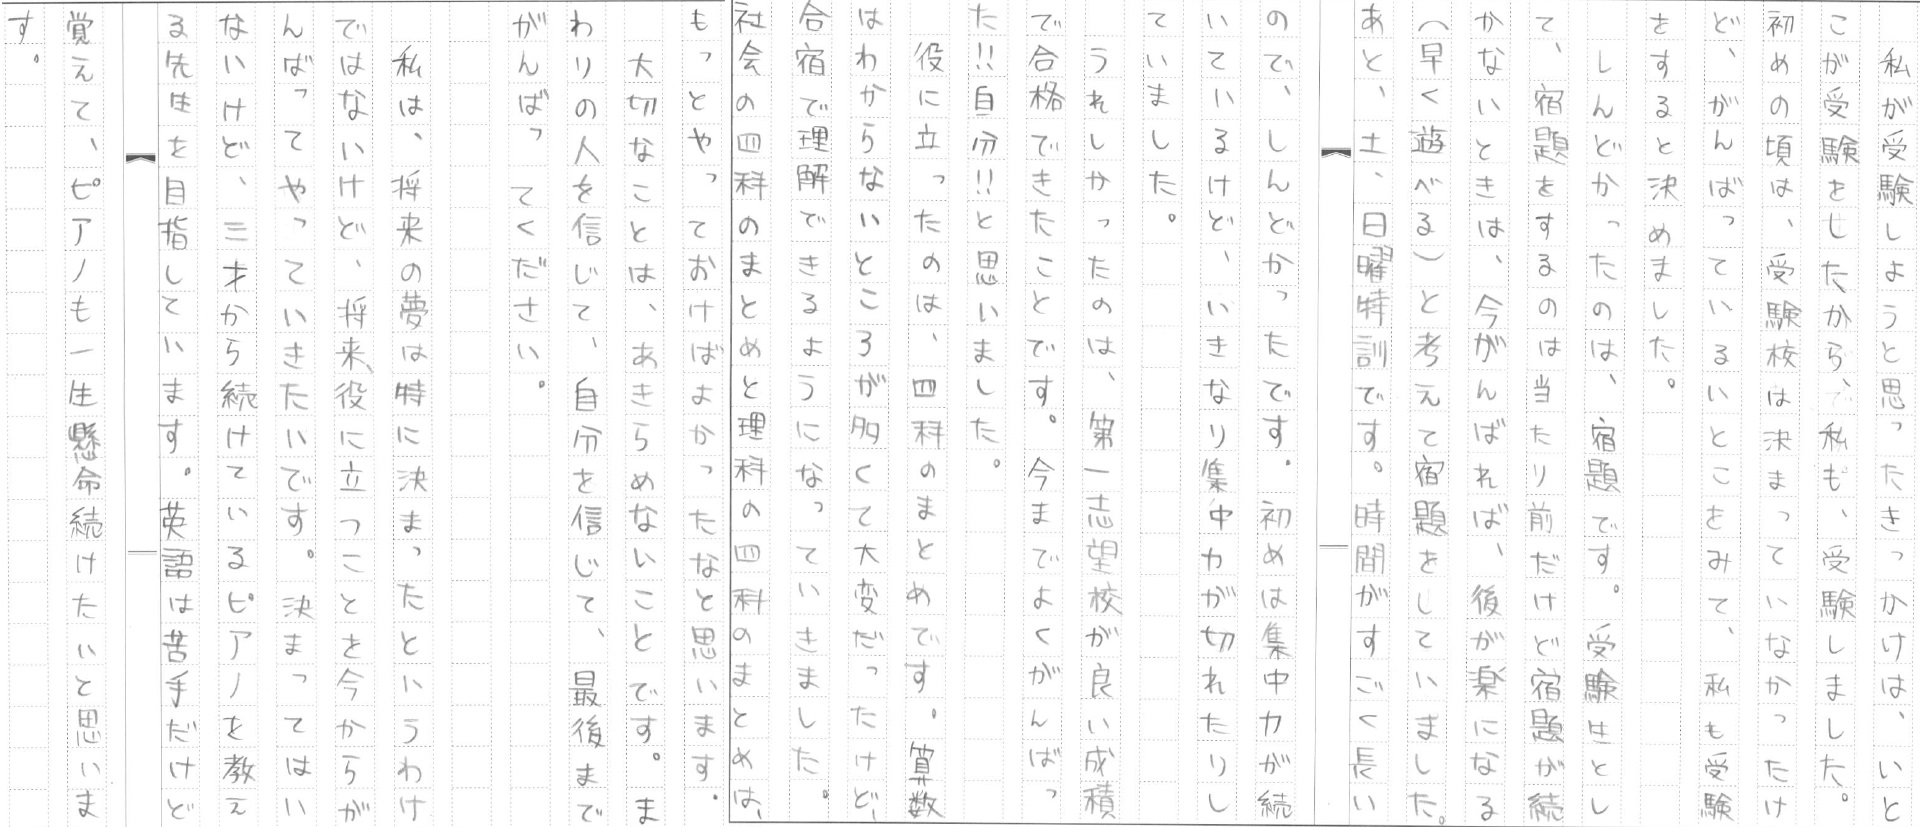 私が受験しようと思ったきっかけは、いと
こが受験をしたから、で私も、受験しました。
初めの頃は、受験校は決まっていなかったけ
ど、がんばっているいとこをみて、私も受験
をすると決めました。
しんどかったのは、宿題です。受験生とし
て、宿題をするのは当たり前だけど宿題が続
かないときは、今がんばれば、後が楽になる
(早く遊べる)と考えて宿題をしていました。
あと、土、日曜特訓です。時間がすごく長い
ので、しんどかったです。初めは集中力が続
いているけど、いきなり集中力が切れたりし
ていました。
うれしかったのは、第一志望校が良い成積
で合格できたことです。今までよくがんばっ
た!!自分!!と思いました。
役に立ったのは、四科のまとめです。算数
はわからないところが多くて大変だったけど、
合宿で理解できるようになっていきました。
社会の四科のまとめと理科の四科のまとめは、
もっとやっておけばよかったなと思います。
大切なことは、あきらめないことです。ま
わりの人を信じて、自分を信じて、最後まで
がんばってください。
私は、将来の夢は特に決まったというわけ
ではないけど、将来、役に立つことを今からが
んばってやっていきたいです。決まってはい
ないけど、三才から続けているピアノを教え
る先生を目指しています。英語は苦手だけど
覚えて、ピアノも一生懸命続けたいと思いま
す。